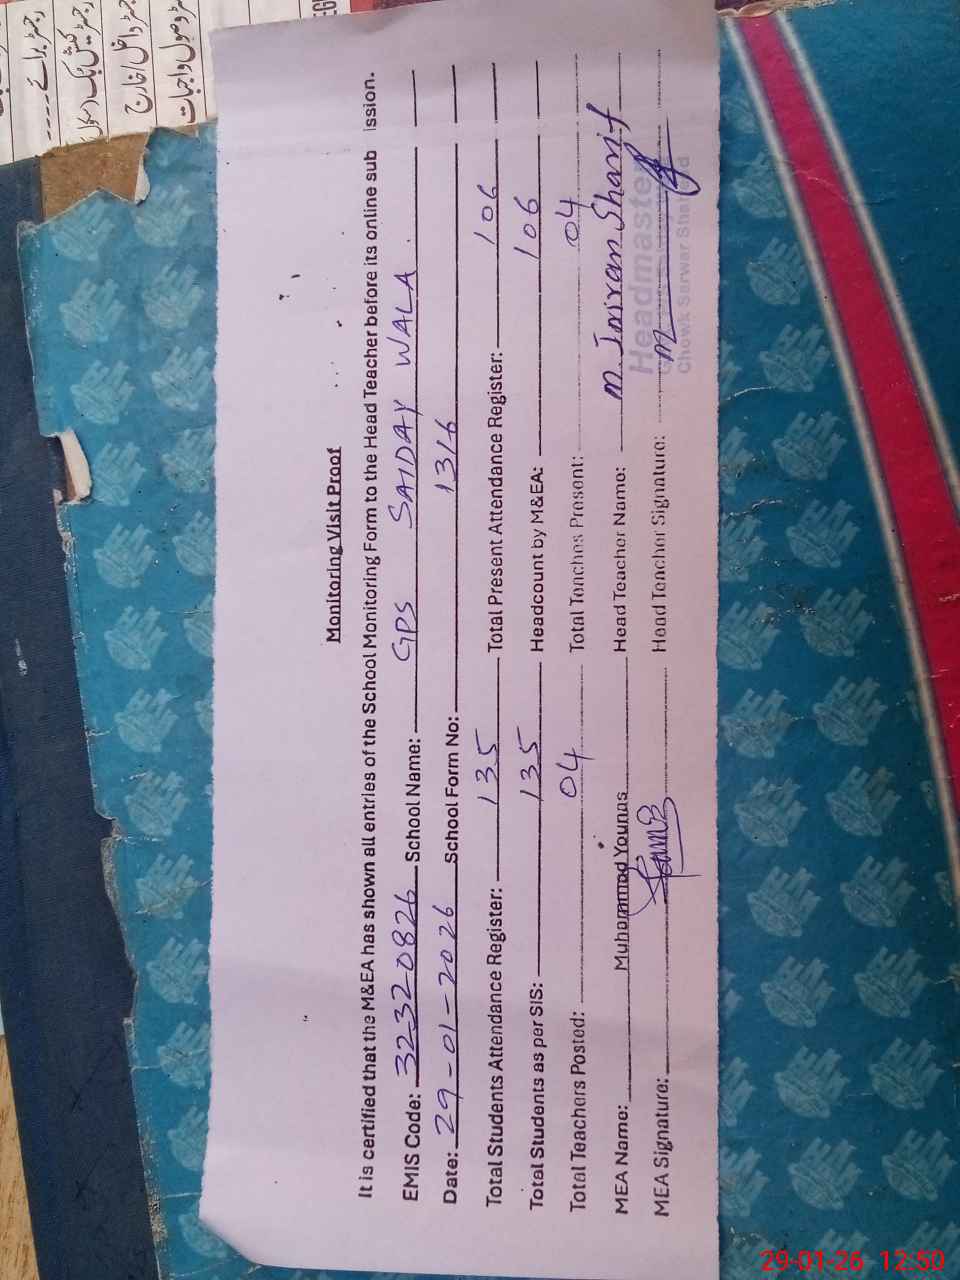 رجسٹر برائے ۔۔۔۔
رجسٹر کیش بک (سکول
رجسٹر داخل / خارج
رجسٹر وصولی واجبات
Monitoring Visit Proof
It is certified that the M&EA has shown all entries of the School Monitoring Form to the Head Teacher before its online sub ission.
EMIS Code: 32320826 School Name: GPS SAIDAY WALA
Date: 29-01-2026 School Form No: 1316
Total Students Attendance Register: 135 Total Present Attendance Register: 106
Total Students as per SIS: 135 Headcount by M&EA: 106
Total Teachers Posted: 04 Total Teaches Present: 04
MEA Name: Muhammad Younas Head Teacher Name: M. Imran Sharif
MEA Signature: Head Teacher Signature:
Headmaster
Chowk Sarwar Shaheed
29-01-26 12:50